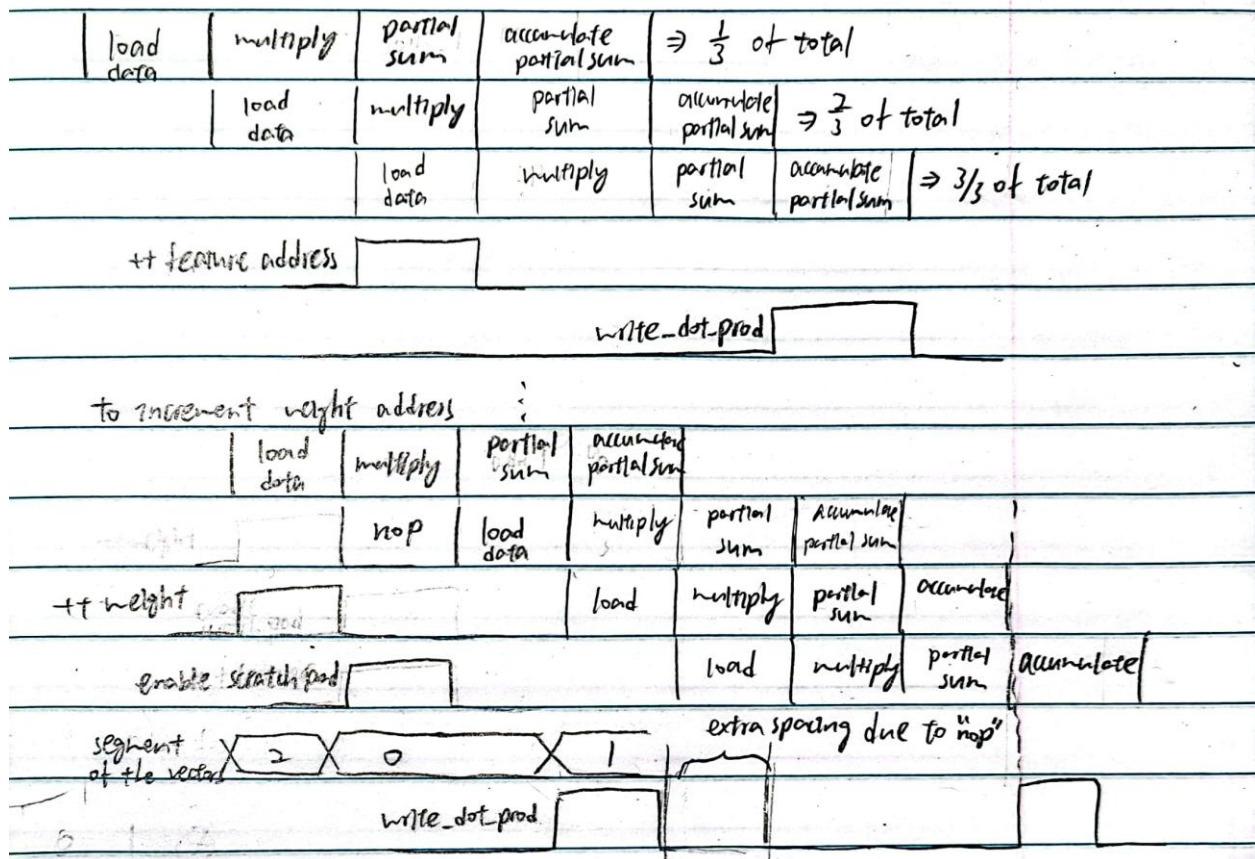 load data multiply partial sum accumulate partial sum ⇒ 1/3 of total
load data multiply partial sum accumulate partial sum ⇒ 2/3 of total
load data multiply partial sum accumulate partial sum ⇒ 3/3 of total
++ feature address
write_dot_prod
to increment weight address
load data multiply partial sum accumulate partial sum
nop load data multiply partial sum accumulate partial sum
++ weight load multiply partial sum accumulate
enable scratch pad load multiply partial sum accumulate
extra spacing due to "nop"
segment of the vector 2 0 1
write_dot_prod